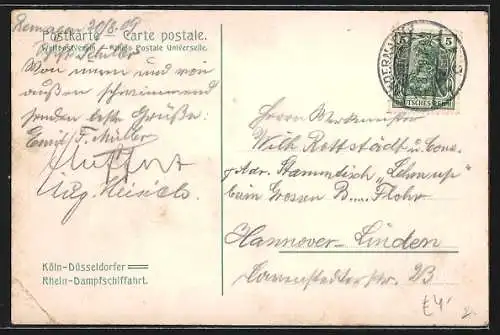 Remagen 20/8.09
Postkarte — Carte postale.
Weltpostverein — Union Postale Universelle.
Von innen und von
außen schwimmend
senden beste Grüße:
Emil F. Müller
Aug.
Köln-Düsseldorfer
Rhein-Dampfschiffahrt.
5
Herrn
Wilh. Rottstädt u. Cons.
Adr. Stammtisch „Lehm up"
beim Grossen B.... Flohr
Hannover-Linden
str. 23
£4